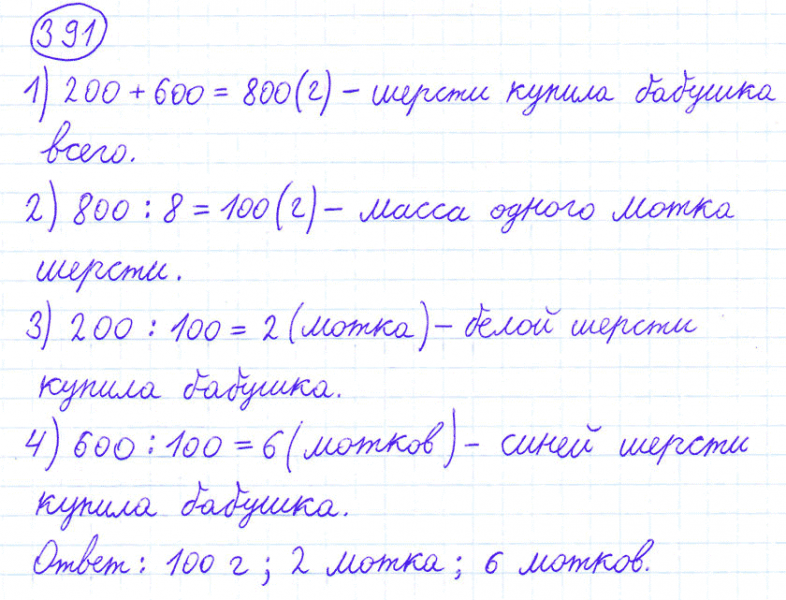 391
1) 200 + 600 = 800 (г) – шерсти купила бабушка
всего.
2) 800 : 8 = 100 (г) – масса одного мотка
шерсти.
3) 200 : 100 = 2 (мотка) – белой шерсти
купила бабушка.
4) 600 : 100 = 6 (мотков) – синей шерсти
купила бабушка.
Ответ: 100 г ; 2 мотка ; 6 мотков.